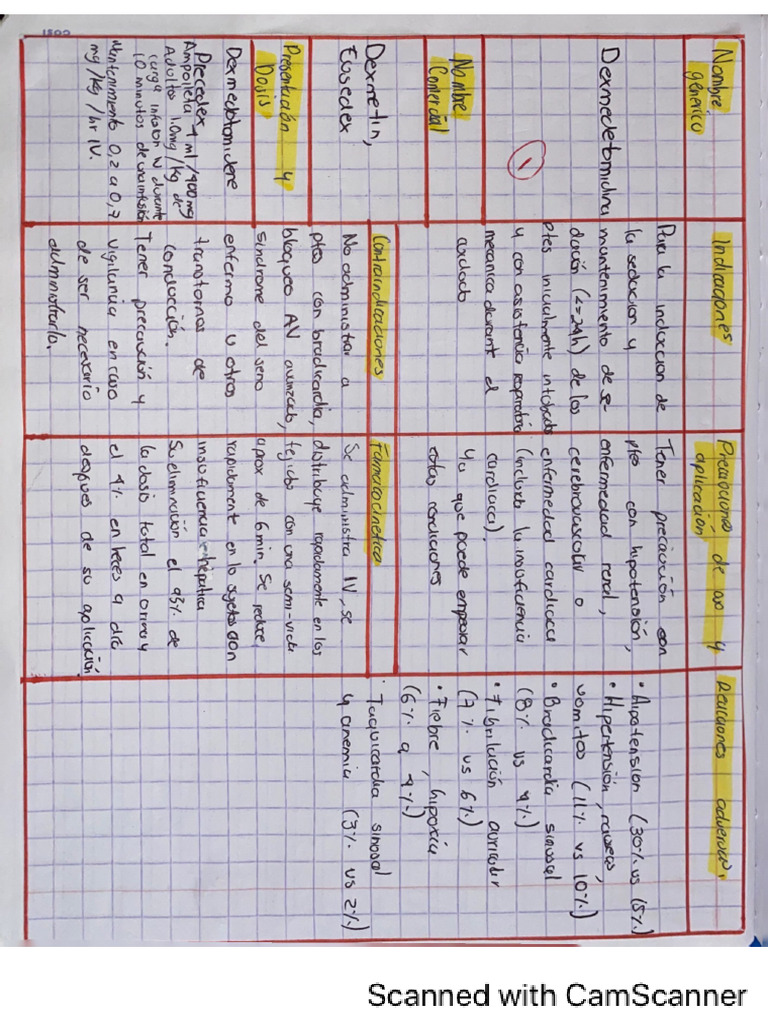 Nombre
genérico
Dexmedetomidina
1
Nombre
Comercial
Dexmetin,
Eusedex
Presentación y
Dosis
Dexmedetomidere
Precedex
Ampolleta 1 ml/400 mg
Adultos 1.0mg/kg de
carga infusion IV durante
10 minutos de una infusión
Mantenimiento 0,2 a 0,7
mg/kg/hr IV.
Indicaciones
Para la induccion de
la sedacion y
mantenimiento de se-
dación (<=24h) de los
ptes inicialmente intubados
y con asistencia respiratoria
mecanica durante el
cuidado
Contraindicaciones
No administrar a
ptes con bradicardia,
bloqueo AV avanzado,
sindrome del seno
enfermo u otros
transtornos de
conducción.
Tener precaución y
vigilancia en caso
de ser necesario
administrarlo.
Precauciones de uso y
aplicación
Tener precaución con
ptes con hipotensión,
enfermedad renal,
cerebrovascular o
enfermedad cardiaca
(incluida la insuficiencia
cardiaca).
Ya que puede empeorar
estas condiciones
Farmacocinética
Se administra IV, se
distribuye rapidamente en los
tejidos con una semi-vida
aprox de 6 min. Se reduce
rapidamente en lo sujetos con
insuficiencia hépitica
Su eliminación el 95% de
la dosis total en orina y
el 4% en heces 9 dia
despues de su aplicación.
Reacciones adversas.
• Hipotension (30% vs 15%)
• Hipertensión, nauseas,
vomitos (11% vs 10%)
• Bradicardia sinusal
(8% vs 4%)
• Fibrilación auricular
(7% vs 6%)
• Fiebre, hipoxia
(6% a 4%)
• Taquicardia sinosal
y anemia (3% vs 2%)
Scanned with CamScanner